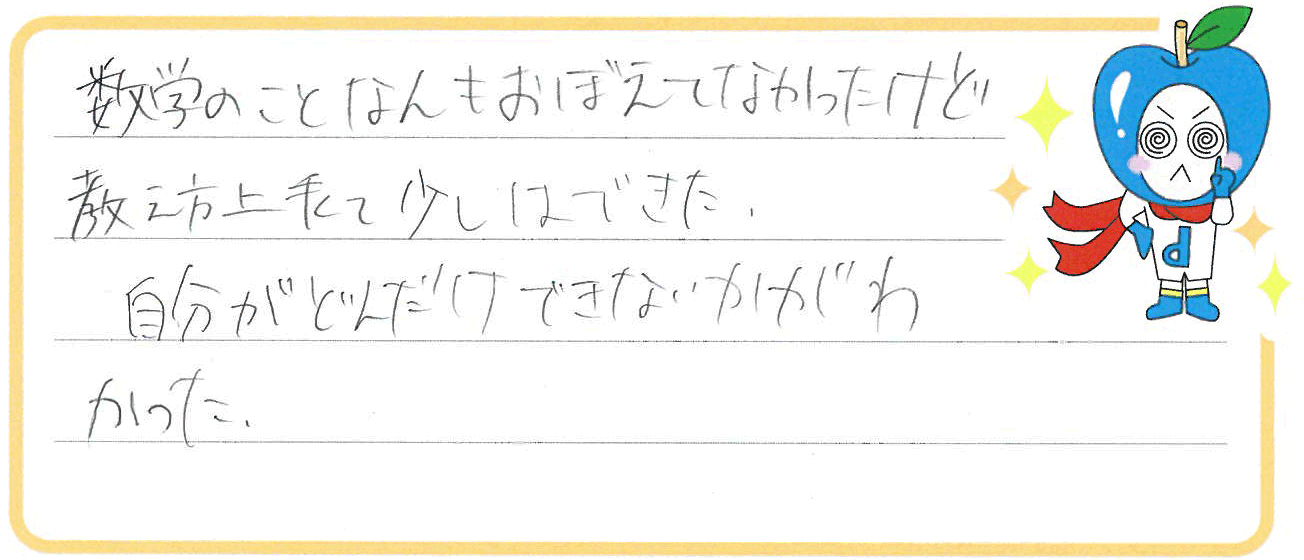 数学のことなんもおぼえてなかったけど
教え方上手くて少しはできた.
自分がどんだけできないかがわ
かった.
d